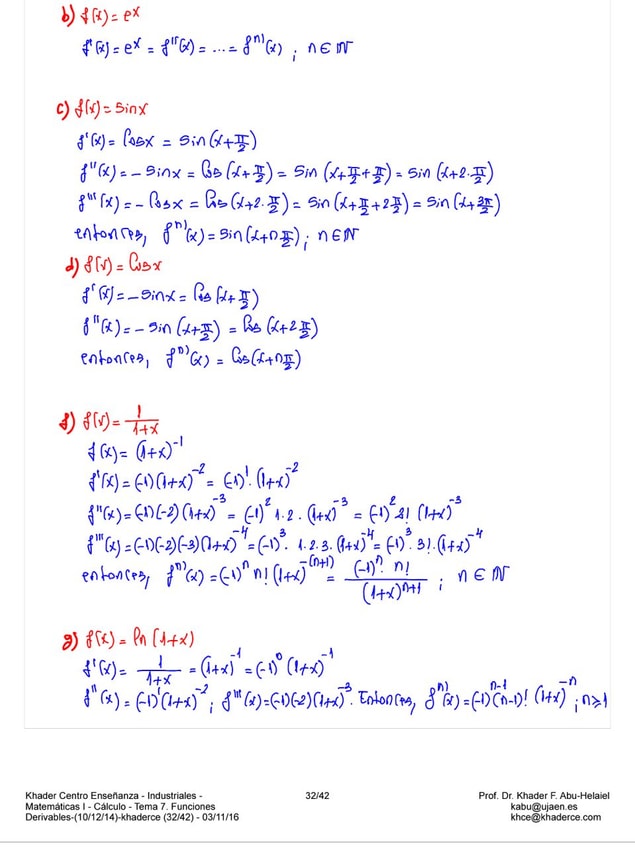 b) f(x) = eˣ
f'(x) = eˣ = f''(x) = ... = fⁿ⁾(x) ; n ∈ ℕ
c) f(x) = sin x
f'(x) = Cos x = sin(x+π/2)
f''(x) = - sin x = Cos(x+π/2) = sin(x+π/2+π/2) = sin(x+2·π/2)
f'''(x) = - Cos x = Cos(x+2·π/2) = sin(x+π/2+2π/2) = sin(x+3π/2)
entonces, fⁿ⁾(x) = sin(x+nπ/2) ; n ∈ ℕ
d) f(x) = Cos x
f'(x) = - sin x = Cos(x+π/2)
f''(x) = - sin(x+π/2) = Cos(x+2π/2)
entonces, fⁿ⁾(x) = Cos(x+nπ/2)
f) f(x) = 1/(1+x)
f(x) = (1+x)⁻¹
f'(x) = (-1)(1+x)⁻² = (-1)¹·(1+x)⁻²
f''(x) = (-1)(-2)(1+x)⁻³ = (-1)² 1·2·(1+x)⁻³ = (-1)² 2! (1+x)⁻³
f'''(x) = (-1)(-2)(-3)(1+x)⁻⁴ = (-1)³· 1·2·3·(1+x)⁻⁴ = (-1)³·3!·(1+x)⁻⁴
entonces, fⁿ⁾(x) = (-1)ⁿ n! (1+x)⁻⁽ⁿ⁺¹⁾ = (-1)ⁿ· n!/(1+x)ⁿ⁺¹ ; n ∈ ℕ
g) f(x) = ln(1+x)
f'(x) = 1/(1+x) = (1+x)⁻¹ = (-1)⁰ (1+x)⁻¹
f''(x) = (-1)¹(1+x)⁻² ; f'''(x) = (-1)(-2)(1+x)⁻³. Entonces, fⁿ⁾(x) = (-1)ⁿ⁻¹(n-1)! (1+x)⁻ⁿ ; n ≥ 1
Khader Centro Enseñanza - Industriales -
Matemáticas I - Cálculo - Tema 7. Funciones
Derivables-(10/12/14)-khaderce (32/42) - 03/11/16
32/42
Prof. Dr. Khader F. Abu-Helaiel
kabu@ujaen.es
khce@khaderce.com